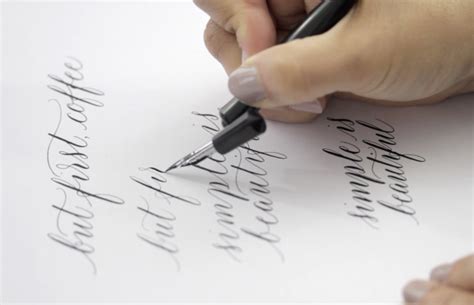 but first, coffee
but fi
simple is
beautiful
simple is
beautiful